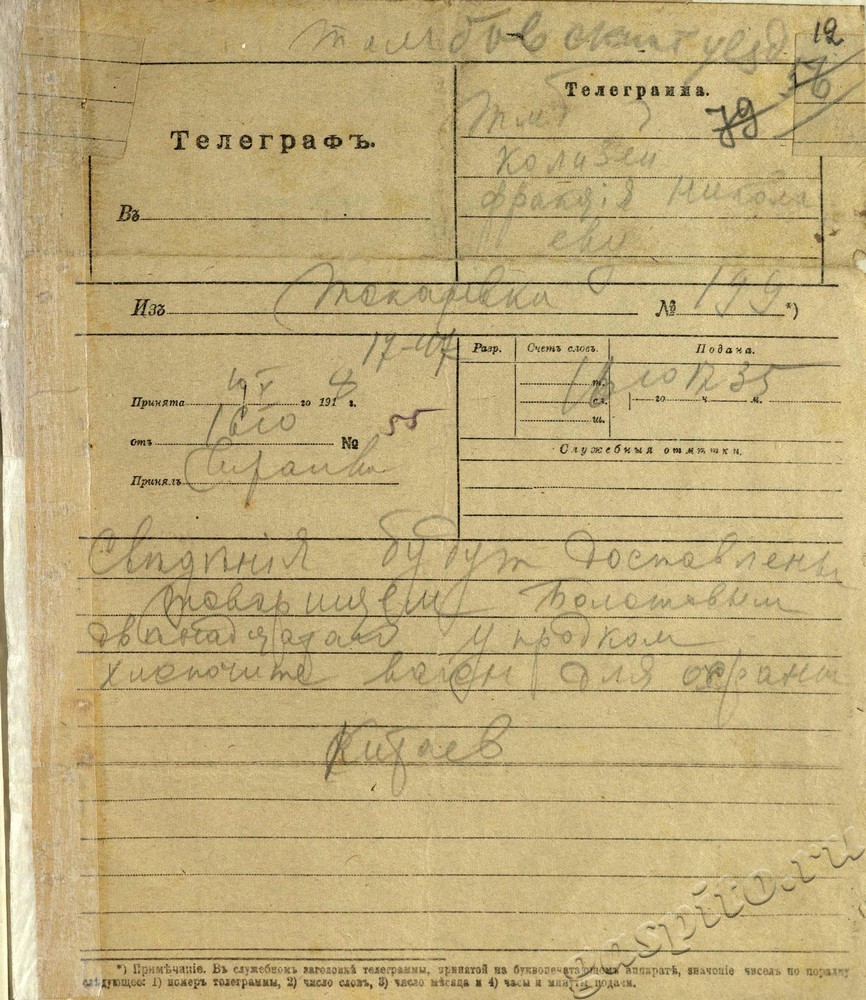 Тамбовский уезд
12
56
79
Телеграфъ.
Въ
Телеграмма.
Тмб
Колизеи
фракція Никола
еву
Изъ Токаревки № 199 *)
17-107
Принята 191 г.
отъ № 55
Принялъ
Разр.
Счетъ словъ.
Подана.
т.
сл.
ш.
го ч. м.
18 10 12 35
Служебныя отмѣтки.
Свѣдѣнія будут доставлены
товарищем Болотовым
двѣнадцатаго упродком
хлопочите вагон для охраны
Китаев
*) Примѣчаніе. Въ служебномъ заголовкѣ телеграммы, принятой на буквопечатающемъ аппаратѣ, значеніе чиселъ по порядку
слѣдующее: 1) номеръ телеграммы, 2) число словъ, 3) число мѣсяца и 4) часы и минуты подачи.
gaspito.ru